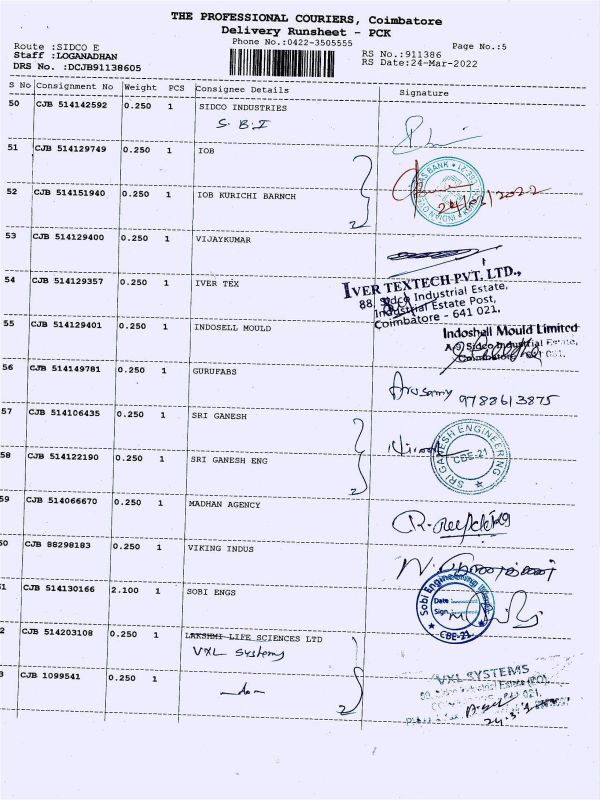 THE PROFESSIONAL COURIERS, Coimbatore
Delivery Runsheet - PCK
Phone No.:0422-3505555
Route :SIDCO E
Staff :LOGANADHAN
DRS No. :DCJB91138605
RS No.:911386
RS Date:24-Mar-2022
Page No.:5
S No Consignment No Weight PCS Consignee Details Signature
50 CJB 514142592 0.250 1 SIDCO INDUSTRIES
S.B.I
51 CJB 514129749 0.250 1 IOB
52 CJB 514151940 0.250 1 IOB KURICHI BARNCH
53 CJB 514129400 0.250 1 VIJAYKUMAR
54 CJB 514129357 0.250 1 IVER TEX
IVER TEXTECH PVT. LTD.,
88, Sidco Industrial Estate,
Industrial Estate Post,
Coimbatore - 641 021.
55 CJB 514129401 0.250 1 INDOSELL MOULD
Indoshell Mould Limited
A-9 Sidco Industrial Estate,
56 CJB 514149781 0.250 1 GURUFABS
Arusamy 9788613875
57 CJB 514106435 0.250 1 SRI GANESH
58 CJB 514122190 0.250 1 SRI GANESH ENG
SRI GANESH ENGINEERING
CBE-21
59 CJB 514066670 0.250 1 MADHAN AGENCY
50 CJB 88298183 0.250 1 VIKING INDUS
51 CJB 514130166 2.100 1 SOBI ENGS
Sobi Engineering
Date :
Sign. :
CBE-21.
2 CJB 514203108 0.250 1 LAKSHMI LIFE SCIENCES LTD
VXL Systems
3 CJB 1099541 0.250 1
-do-
VXL SYSTEMS